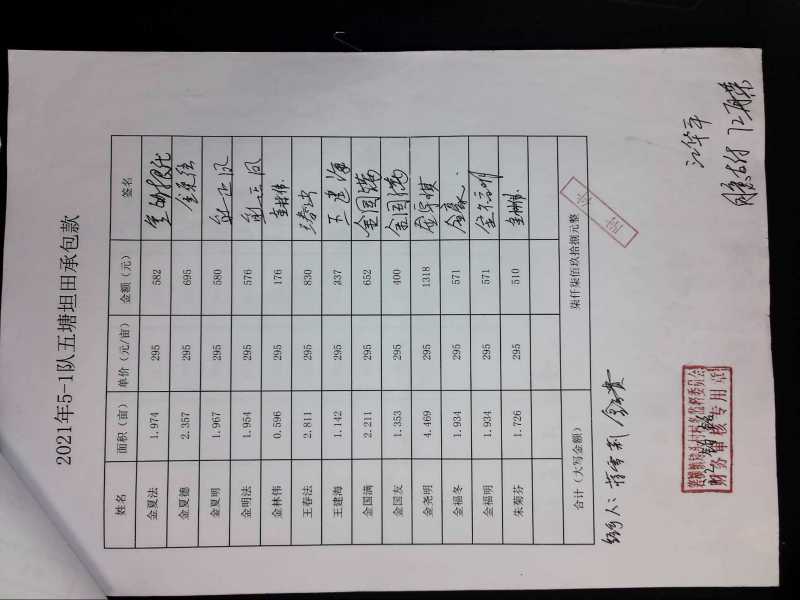 2021年5-1队五塘坦田承包款
姓名 面积（亩） 单价（元/亩） 金额（元） 签名
金夏法 1.974 295 582
金夏德 2.357 295 695
金夏明 1.967 295 580
金明法 1.954 295 576
金林伟 0.596 295 176 金林伟
王春法 2.811 295 830
王建海 1.142 295 337 王建海
金国满 2.211 295 652 金国满
金国友 1.353 295 400 金国满
金尧明 4.469 295 1318
金福冬 1.934 295 571
金福明 1.934 295 571
朱菊芬 1.726 295 510
合计（大写金额） 柒仟柒佰玖拾捌元整
经手人：
江华平
同意支付 江再荣
财务审核专用章